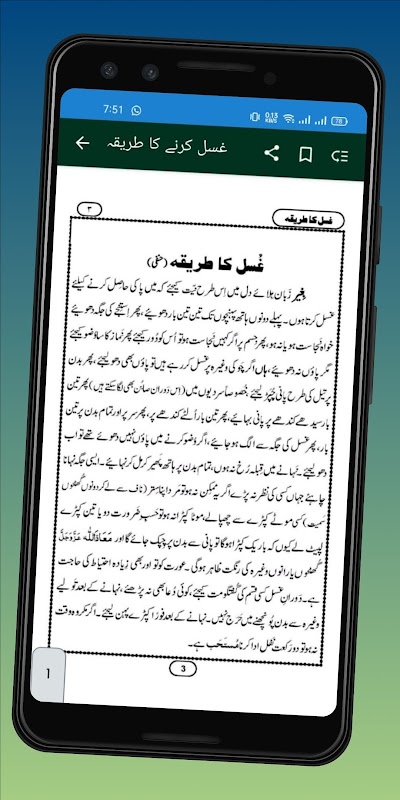 7:51
0.15 KB/S
78
غسل کرنے کا طریقہ
۳
غسل کا طریقہ
غُسل کا طریقہ (حنفی)
بغیر زَبان ہلائے دل میں اِس طرح نیّت کیجئے کہ میں پاکی حاصل کرنے کیلئے
غسل کرتا ہوں۔ پہلے دونوں ہاتھ پہنچوں تک تین تین بار دھوئیے، پھر اِستنجے کی جگہ دھوئیے
خواہ نَجاست ہو یا نہ ہو، پھر جسم پر اگر کہیں نَجاست ہو تو اُس کو دُور کیجئے پھر نَماز کا سا وُضو کیجئے
مگر پاؤں نہ دھوئیے، ہاں اگر چوکی وغیرہ پر غسل کر رہے ہیں تو پاؤں بھی دھو لیجئے، پھر بدن
پر تیل کی طرح پانی چُپڑ لیجئے، خُصوصاً سردیوں میں (اِس دَوران صابُن بھی لگا سکتے ہیں) پھر تین
بار سیدھے کندھے پر پانی بہائیے، پھر تین بار اُلٹے کندھے پر، پھر سر پر اور تمام بدن پر تین
بار، پھر غسل کی جگہ سے الگ ہو جائیے، اگر وُضو کرنے میں پاؤں نہیں دھوئے تھے تو اب
دھو لیجئے۔ نَہانے میں قبلہ رُخ نہ ہوں، تمام بدن پر ہاتھ پھیر کر مل کر نہائیے۔ ایسی جگہ نہانا
چاہئے جہاں کسی کی نظر نہ پڑے اگر یہ ممکن نہ ہو تو مَرد اپنا سِتْر (ناف سے لے کر دونوں گھٹنوں
سمیت) کسی موٹے کپڑے سے چھپا لے، موٹا کپڑا نہ ہو تو حسبِ ضَرورت دو یا تین کپڑے
لپیٹ لے کیوں کہ باریک کپڑا ہوگا تو پانی سے بدن پر چپک جائے گا اور مَعَاذَاللہ عَزَّوَجَلَّ
گھٹنوں یا رانوں وغیرہ کی رنگت ظاہر ہو گی۔ عورت کو تو اور بھی زیادہ احتیاط کی حاجت
ہے۔ دَورانِ غسل کسی قسم کی گفتگو مت کیجئے، کوئی دُعا بھی نہ پڑھئے، نہانے کے بعد تولیے
وغیرہ سے بدن پُونچھنے میں حَرَج نہیں۔ نہانے کے بعد فوراً کپڑے پہن لیجئے۔ اگر مکروہ وقت
نہ ہو تو دو رَکعت نفل ادا کرنا مُستَحَب ہے۔
3
1